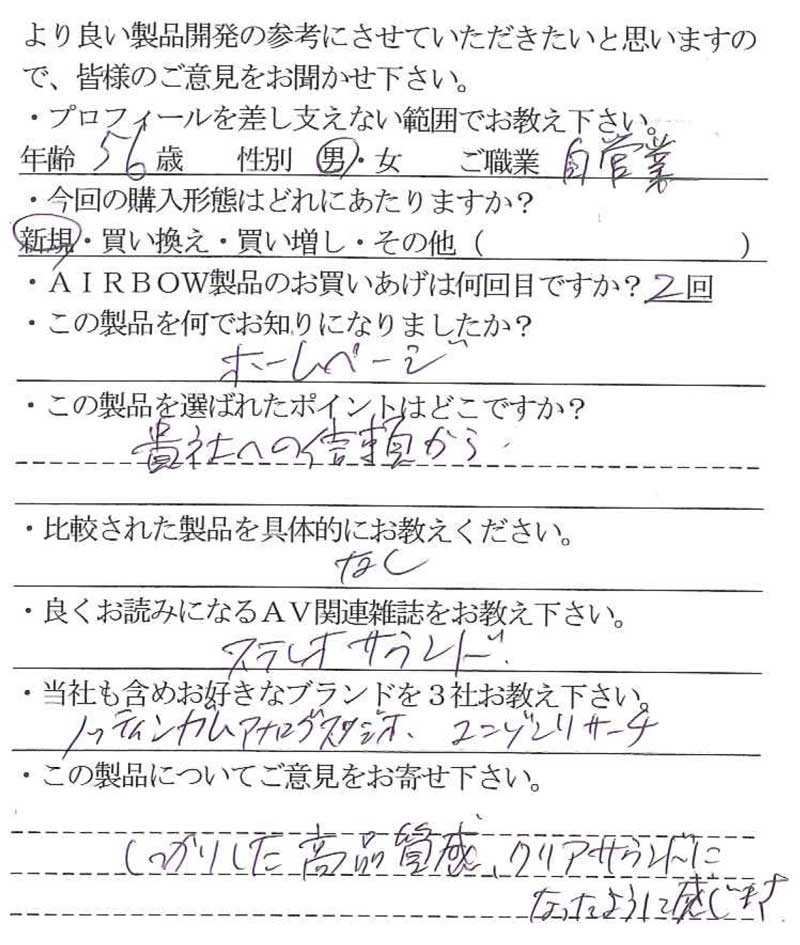 より良い製品開発の参考にさせていただきたいと思いますの
で、皆様のご意見をお聞かせ下さい。
・プロフィールを差し支えない範囲でお教え下さい。
年齢 56 歳 性別 男・女 ご職業 自営業
・今回の購入形態はどれにあたりますか？
新規・買い換え・買い増し・その他（ ）
・ＡＩＲＢＯＷ製品のお買いあげは何回目ですか？2回
・この製品を何でお知りになりましたか？
ホームページ
・この製品を選ばれたポイントはどこですか？
貴社への信頼から．
・比較された製品を具体的にお教えください。
なし
・良くお読みになるＡＶ関連雑誌をお教え下さい。
ステレオサウンド．
・当社も含めお好きなブランドを３社お教え下さい。
ノッティンガムアナログスタジオ．ユニゾンリサーチ
・この製品についてご意見をお寄せ下さい。
しっかりした高品質感、クリアサウンドに
なったように感じます